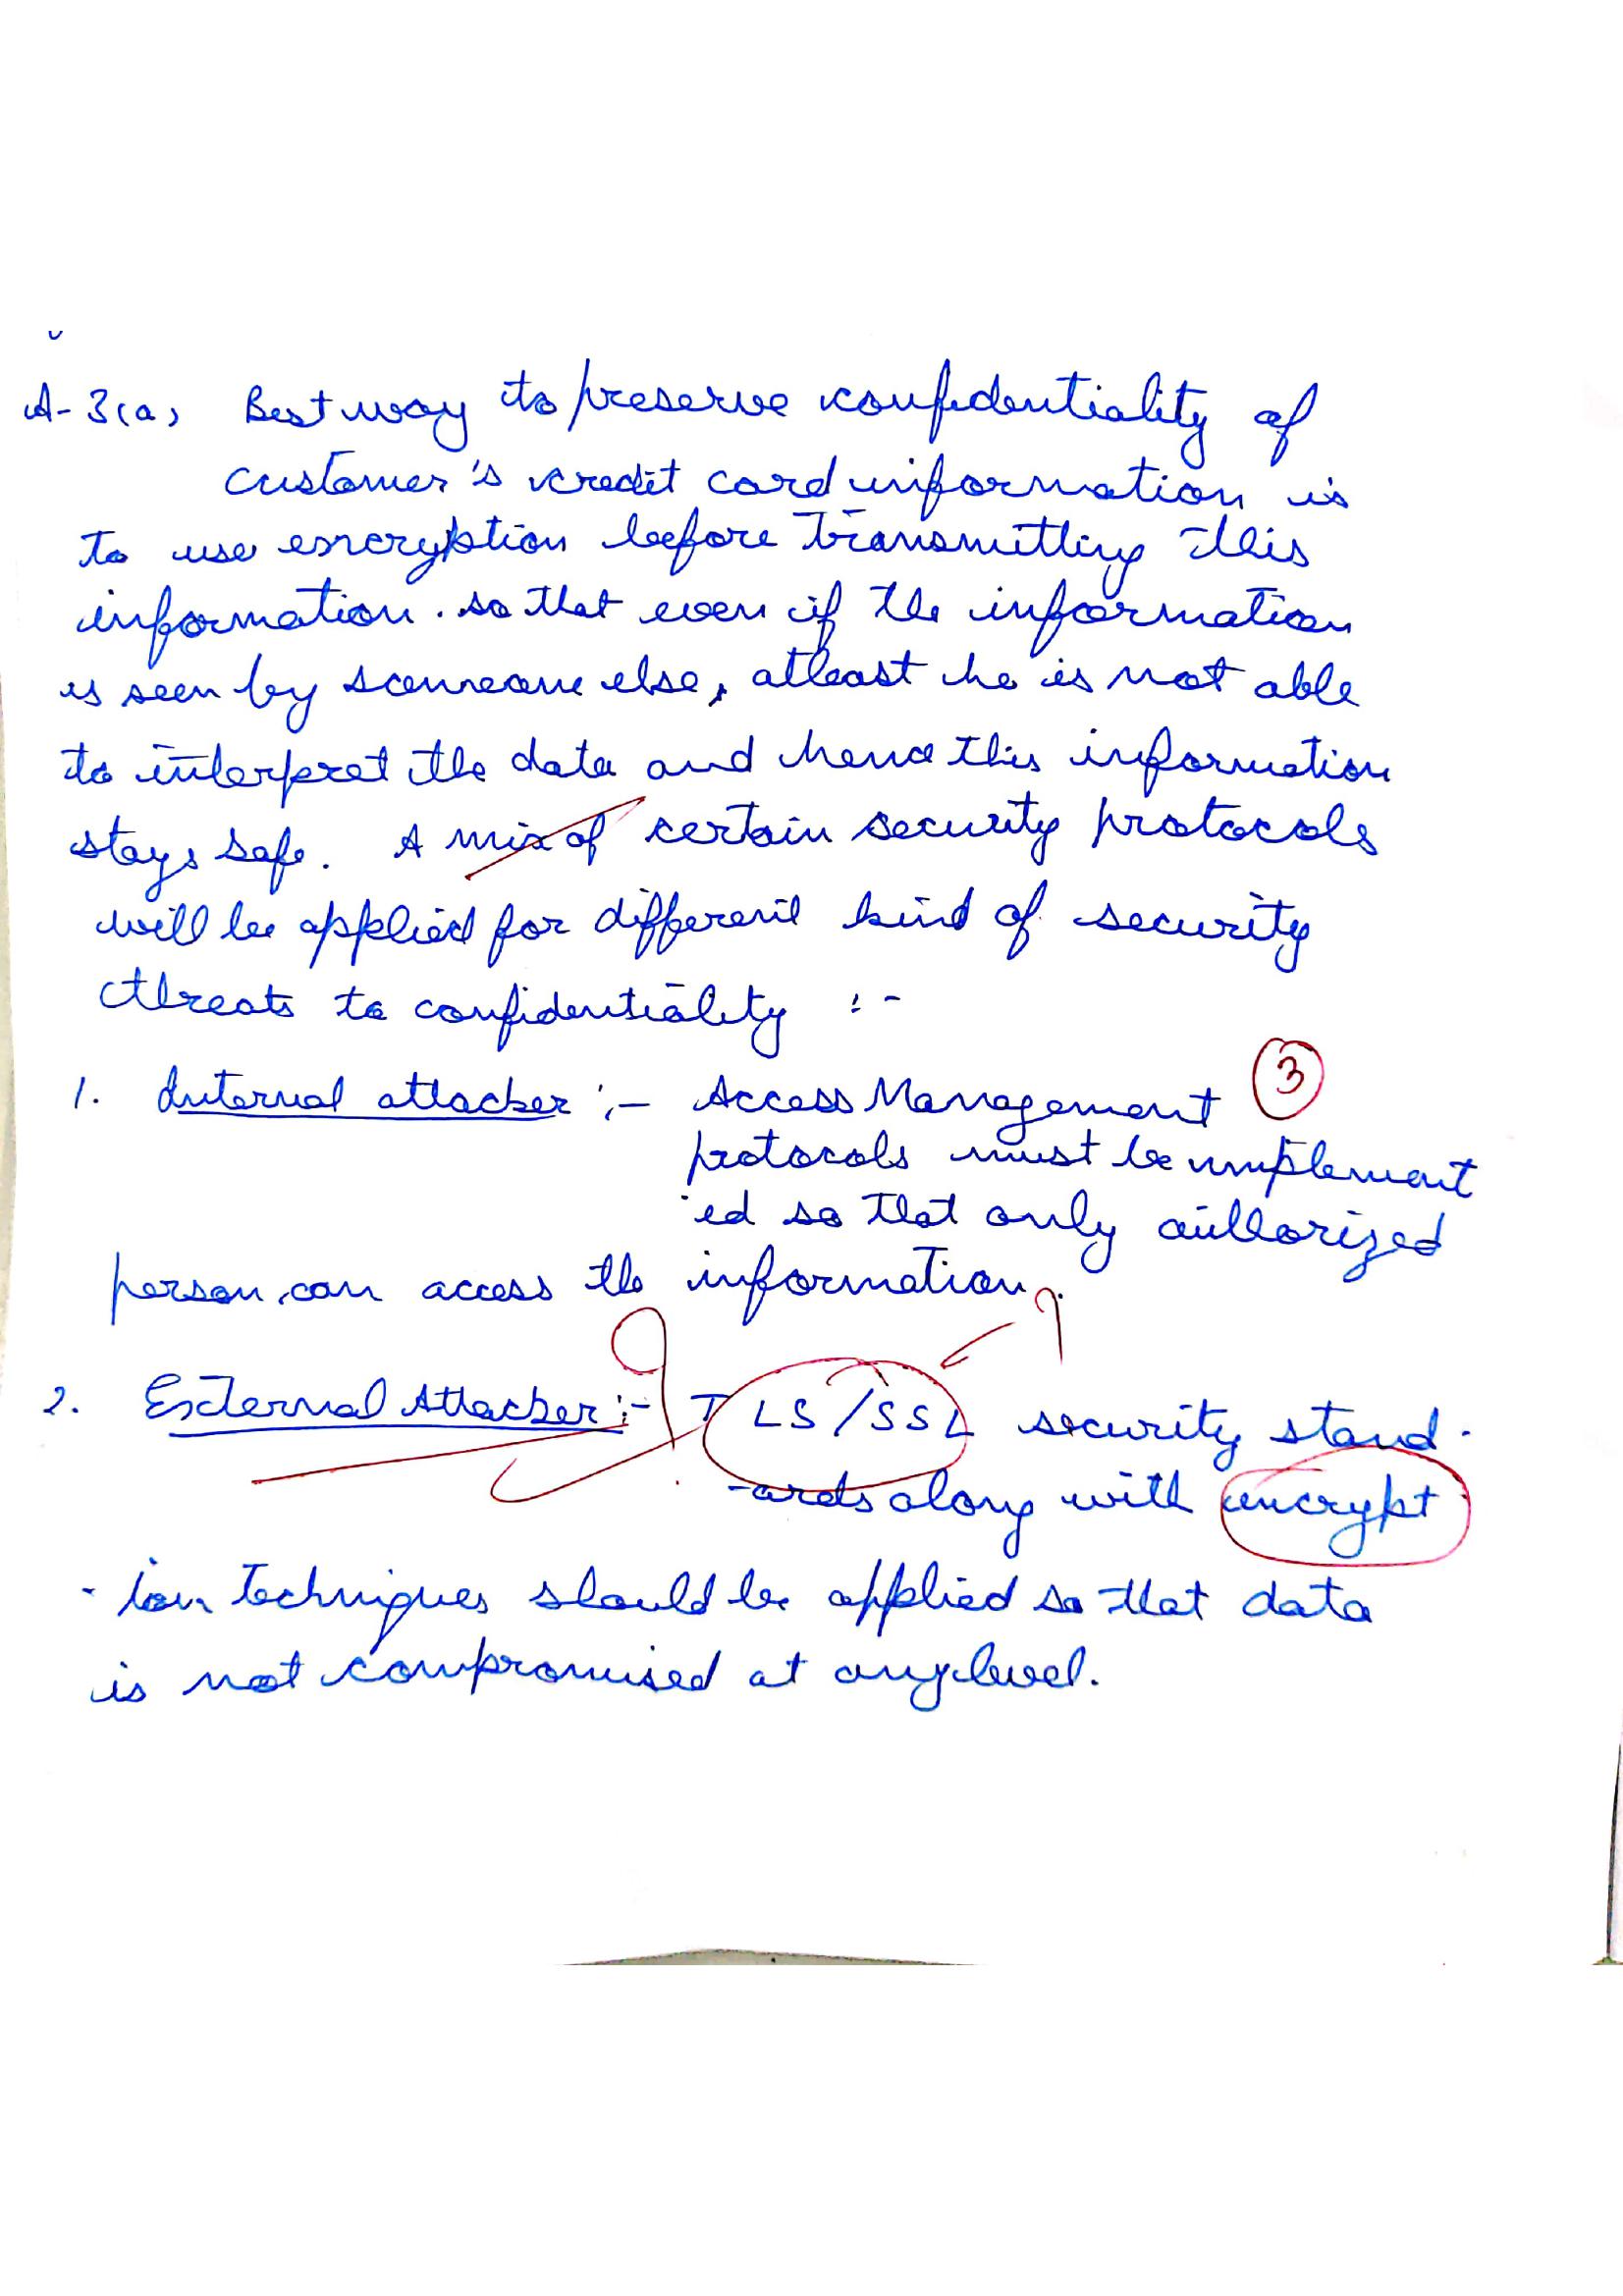 A-3(a) Best way to preserve confidentiality of
customer's credit card information is
to use encryption before transmitting this
information. so that even if the information
is seen by someone else, atleast he is not able
to interpret the data and hence this information
stays safe. A mix of certain security protocols
will be applied for different kind of security
threats to confidentiality :-
1. Internal attacker :- Access Management
3
protocols must be implement
ed so that only authorized
person can access the information.
2. External Attacker :- TLS/SSL security stand-
-ards along with encrypt
-ion techniques should be applied so that data
is not compromised at any level.